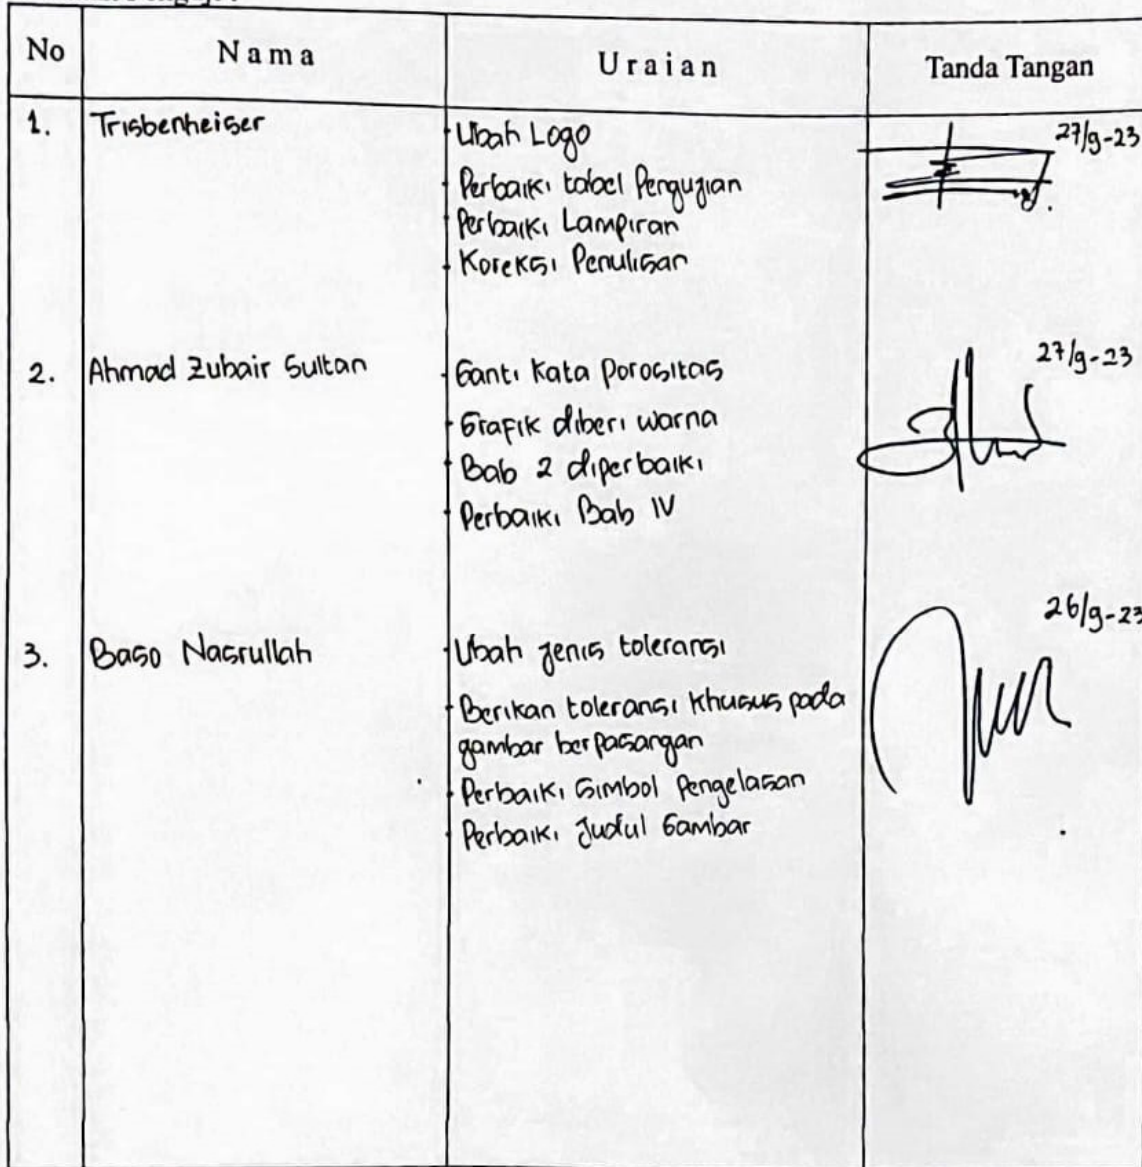 No Nama Uraian Tanda Tangan
1. Trisbenheiser - Ubah Logo 27/9-23
- Perbaiki tabel Pengujian
- Perbaiki Lampiran
- Koreksi Penulisan
2. Ahmad Zubair Sultan - Ganti Kata Porositas 27/9-23
- Grafik diberi warna
- Bab 2 diperbaiki
- Perbaiki Bab IV
3. Baso Nasrullah - Ubah jenis toleransi 26/9-23
- Berikan toleransi khusus pada
gambar berpasangan
- Perbaiki Simbol Pengelasan
- Perbaiki Judul Gambar